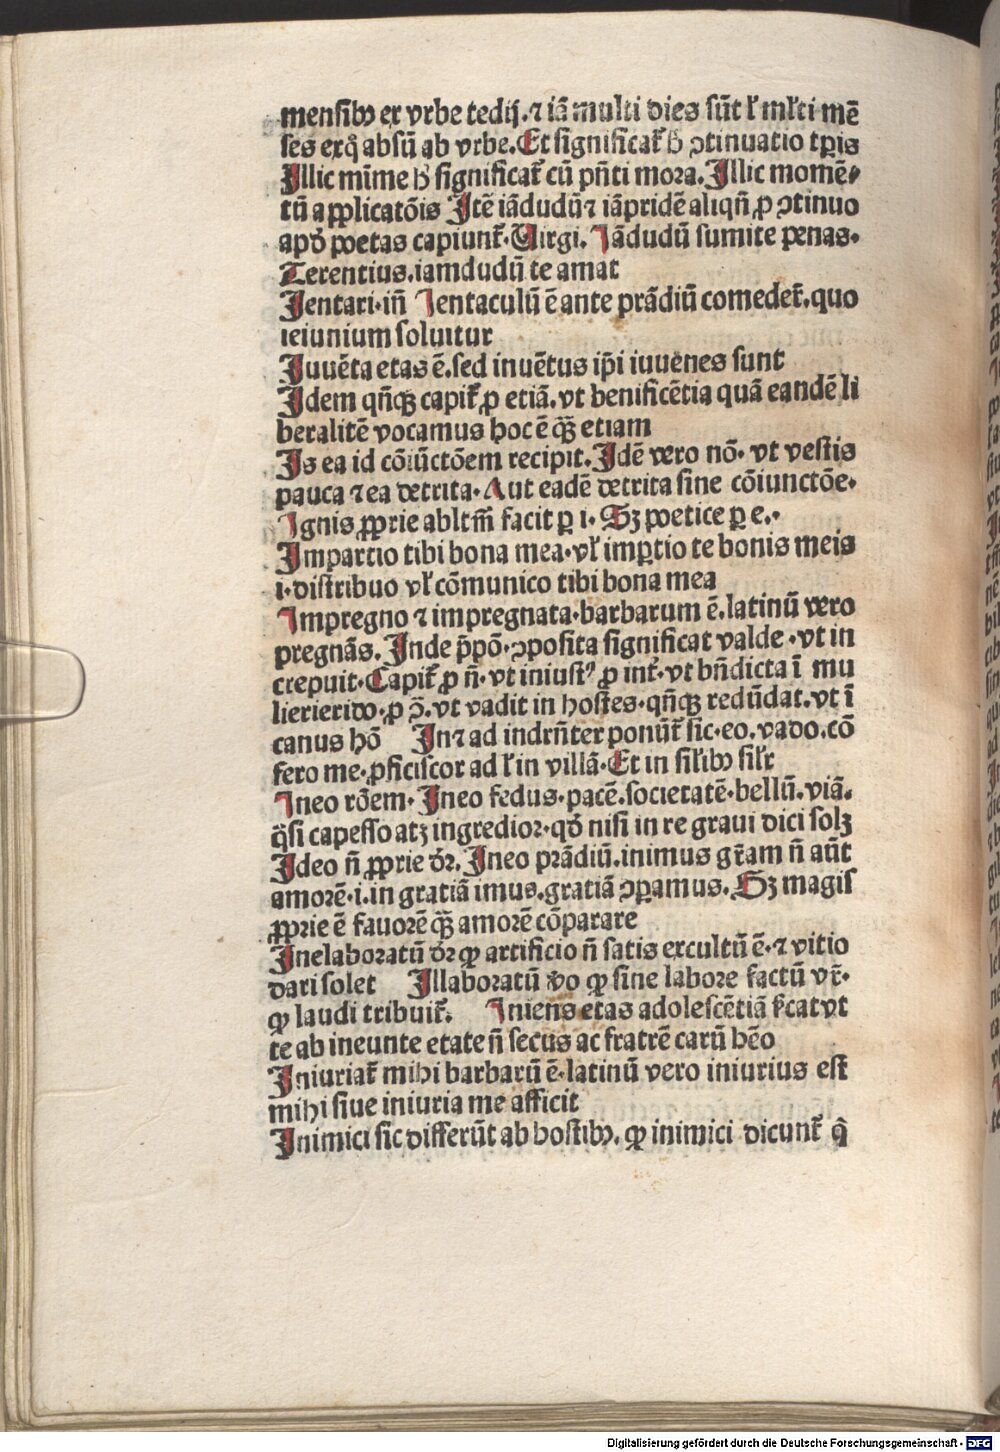 mensibꝰ ex vrbe tedij. ⁊ iã multi dies sũt ł mľti mẽ
ses exq̊ absũ ab vrbe. Et significat᷑ h̄ ↄtinuatio tp̃is
Illic mĩme h̄ significat᷑ cũ pñti mora. Illic momẽ⸗
tũ applicatõis Itẽ iãdudũ ⁊ iãpridẽ aliqñ ꝓ ↄtinuo
apđ poetas capiunt᷑. Uirgi. Iãdudũ sumite penas.
Terentius. iamdudũ te amat
Ientari. iñ Ientaculũ ẽ ante prãdiũ comeder᷑. quo
ieiunium soluitur
Iuuẽta etas ẽ. sed inuẽtus ip̃i iuuenes sunt
Idem qñqꝫ capit᷑ ꝓ etiã. vt benificẽtia quã eandẽ li
beralitẽ vocamus hoc ẽ qꝫ̃ etiam
Is ea id cõiũctõem recipit. Idẽ vero nõ. vt vestis
pauca ⁊ ea detrita. Aut eadẽ detrita sine cõiunctõe.
Ignis ꝓprie abltm̃ facit ꝑ i. Sꝫ poetice ꝑ e.
Impartio tibi bona mea. vł imꝑtio te bonis meis
i. distribuo vł cõmunico tibi bona mea
Impregno ⁊ impregnata. barbarum ẽ. latinũ vero
pregnãs. Inde p̃põ. ↄposita significat valde. vt in
crepuit. Capit᷑ ꝓ ñ. vt iniustꝰ ꝓ int᷑. vt bñdicta ĩ mu
lierieribꝰ. ꝓ ↄ̃. vt vadit in hostes. qñqꝫ redũdat. vt ĩ
canus hõ In ⁊ ad indrñter ponũt᷑ sic. eo. vado. cõ
fero me. ꝓficiscor ad ł in villã. Et in silibꝰ silr
Ineo rõem. Ineo fedus. pacẽ. societatẽ. bellũ. viã.
q̃si capesso atꝫ ingredior. qđ nisi in re graui dici solꝫ
Ideo ñ ꝓprie dr̃. Ineo prãdiũ. inimus gr̃am ñ aũt
amorẽ. i. in gratiã imus. gratiã ↄꝑamus. Sꝫ magis
ꝓprie ẽ fauorẽ qꝫ̃ amorẽ cõparare
Inelaboratũ dr̃ qđ artificio ñ satis excultũ ẽ. ⁊ vitio
dari solet Illaboratũ v̊o qđ sine labore factũ vr̃.
qđ laudi tribuit᷑. Iniens etas adolescẽtiã s̃cat vt
te ab ineunte etate ñ secus ac fratrẽ carũ hẽo
Iniuriat᷑ mihi barbarũ ẽ. latinũ vero iniurius est
mihi siue iniuria me afficit
Inimici sic differũt ab hostibꝰ. qđ inimici dicunt᷑ q̃
Digitalisierung gefördert durch die Deutsche Forschungsgemeinschaft - DFG